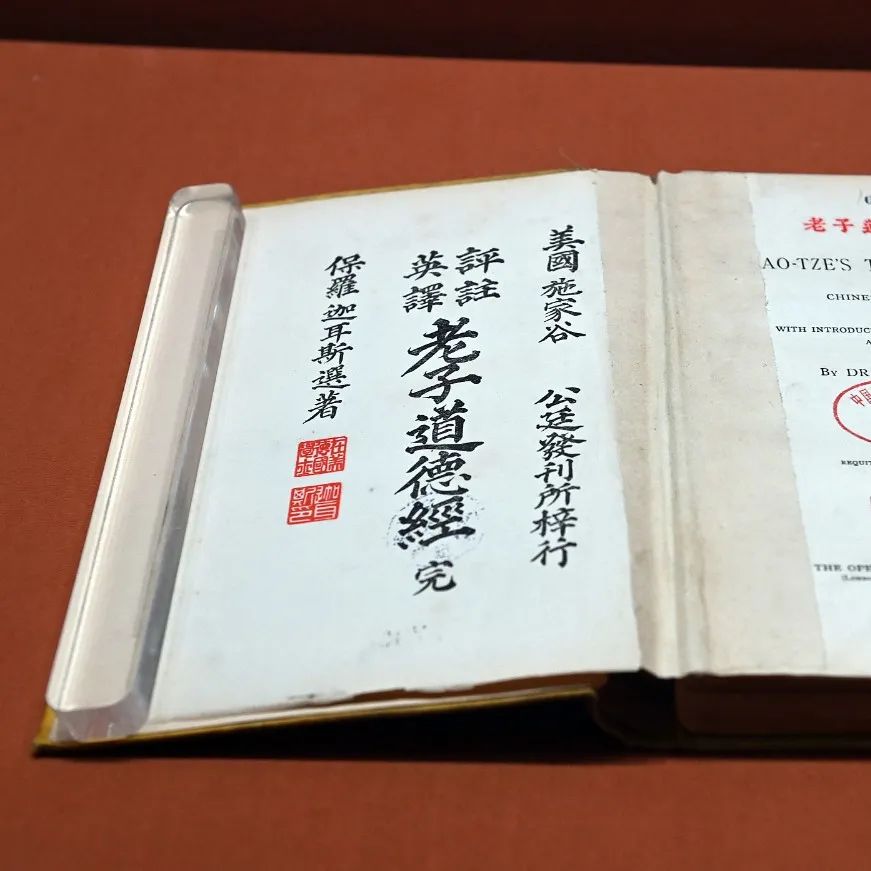 美國施家谷 公廷發刊所梓行
評註
英譯
老子道德經 完
保羅迦耳斯選著
老子
AO-TZE'S T
CHINES
WITH INTRODUCT
A
BY DR
中国
REQUIT
THE OPE
(Londo